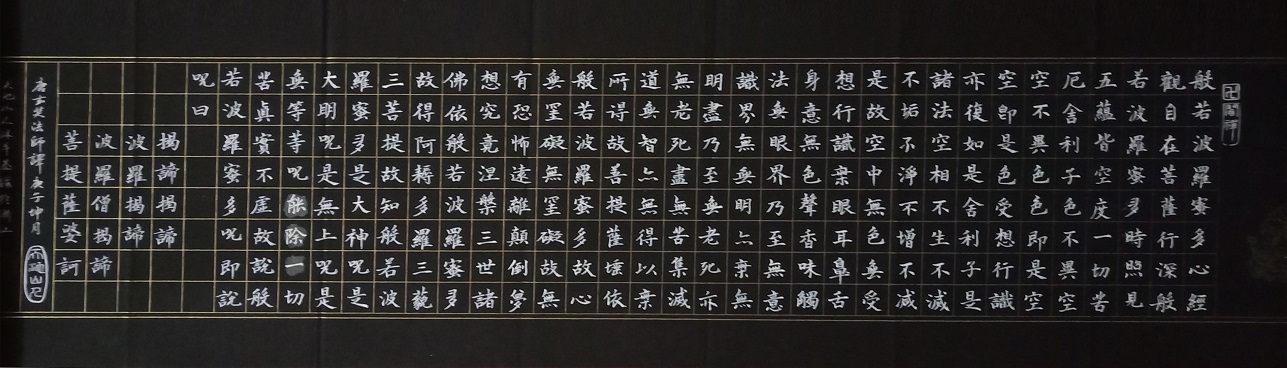 般若波羅蜜多心經
觀自在菩薩行深般
若波羅蜜多時照見
五蘊皆空度一切苦
厄舍利子色不異空
空不異色色即是空
空即是色受想行識
亦復如是舍利子是
諸法空相不生不滅
不垢不淨不增不減
是故空中無色無受
想行識無眼耳鼻舌
身意無色聲香味觸
法無眼界乃至無意
識界無無明亦無無
明盡乃至無老死亦
無老死盡無苦集滅
道無智亦無得以無
所得故菩提薩埵依
般若波羅蜜多故心
無罣礙無罣礙故無
有恐怖遠離顛倒夢
想究竟涅槃三世諸
佛依般若波羅蜜多
故得阿耨多羅三藐
三菩提故知般若波
羅蜜多是大神呪是
大明呪是無上呪是
無等等呪能除一切
苦真實不虛故說般
若波羅蜜多呪即說
呪曰
揭諦揭諦
波羅揭諦
波羅僧揭諦
菩提薩婆訶
唐玄奘法師譯 庚子坤月